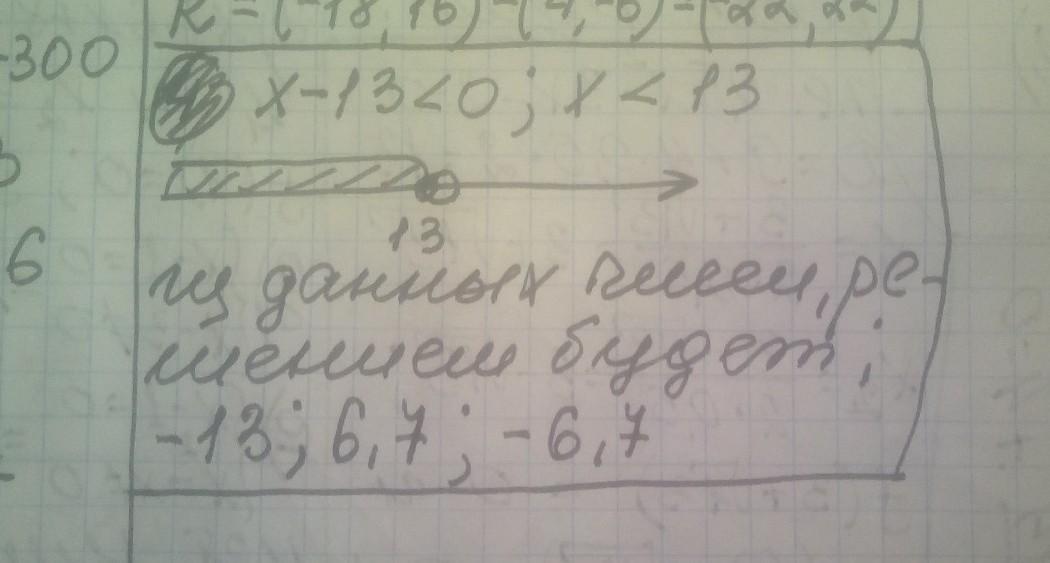 K = (-18, 16) - (4, -6) = (-22, 22)
-300
x - 13 < 0 ; x < 13
13
6
из данных чисел, ре-
шением будет;
-13; 6,7; -6,7